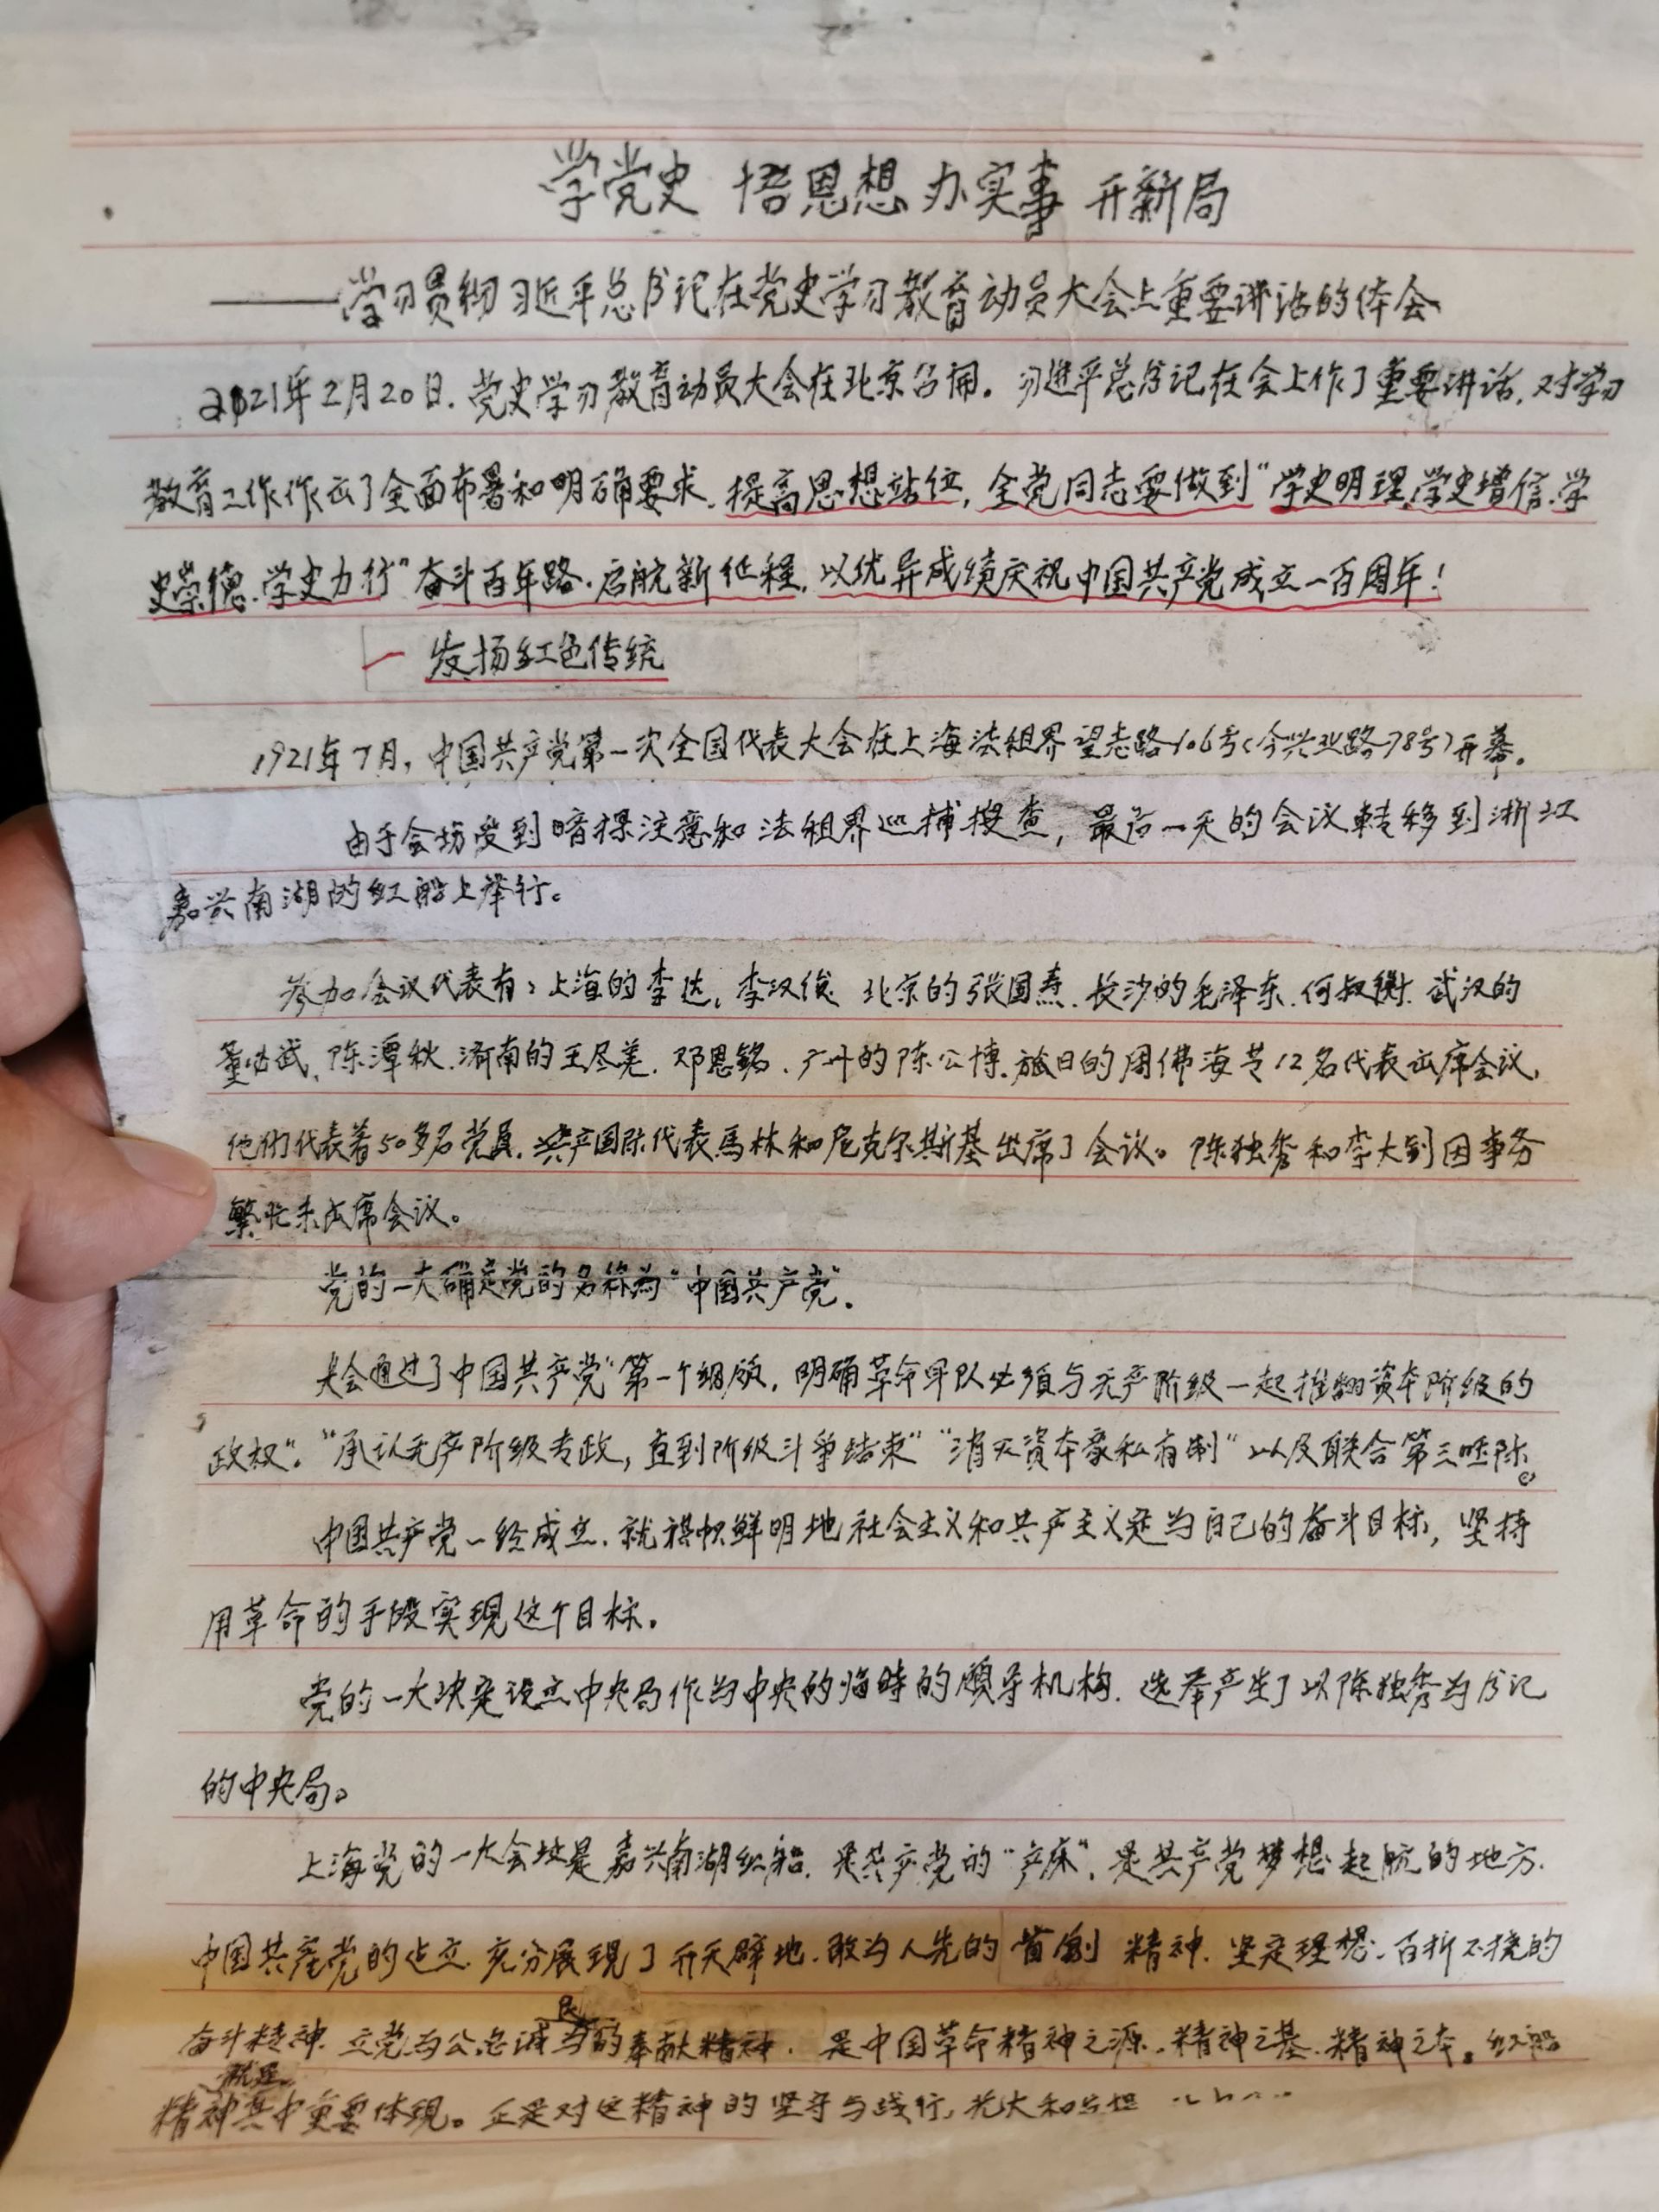 学党史 悟思想 办实事 开新局
——学习贯彻习近平总书记在党史学习教育动员大会上重要讲话的体会
2021年2月20日.党史学习教育动员大会在北京召开。习近平总书记在会上作了重要讲话,对学习
教育工作作出了全面布署和明确要求.提高思想站位,全党同志要做到“学史明理.学史增信.学
史崇德.学史力行”奋斗百年路.启航新征程,以优异成绩庆祝中国共产党成立一百周年!
一 发扬红色传统
1921年7月,中国共产党第一次全国代表大会在上海法租界望志路106号(今兴业路78号)开幕。
由于会场受到暗探注意和法租界巡捕搜查,最后一天的会议转移到浙江
嘉兴南湖的红船上举行。
参加会议代表有:上海的李达、李汉俊 北京的张国焘.长沙的毛泽东.何叔衡.武汉的
董必武、陈潭秋.济南的王尽美.邓恩铭.广州的陈公博.旅日的周佛海等12名代表出席会议,
他们代表着50多名党员.共产国际代表馬林和尼克尔斯基出席了会议。陈独秀和李大钊因事务
繁忙未出席会议。
党的一大确定党的名称为“中国共产党”.
大会通过了中国共产党“第一个纲领,明确革命军队必须与无产阶级一起推翻资本阶级的
政权”.“承认无产阶级专政,直到阶级斗争结束”“消灭资本家私有制”以及联合第三国际。
中国共产党一经成立.就旗帜鲜明地社会主义和共产主义定为自己的奋斗目标,坚持
用革命的手段实现这个目标.
党的一大决定设立中央局作为中央的临時的领导机构.选举产生了以陈独秀为书记
的中央局。
上海党的一大会址是嘉兴南湖红船.是共产党的“产床”.是共产党梦想起航的地方.
中国共产党的建立.充分展現了开天辟地.敢为人先的首创精神.坚定理想.百折不挠的
奋斗精神.立党为公忠诚为民的奉献精神.是中国革命精神之源.精神之基.精神之本。红船
精神就是其中重要体現。正是对这精神的坚守与践行,光大和